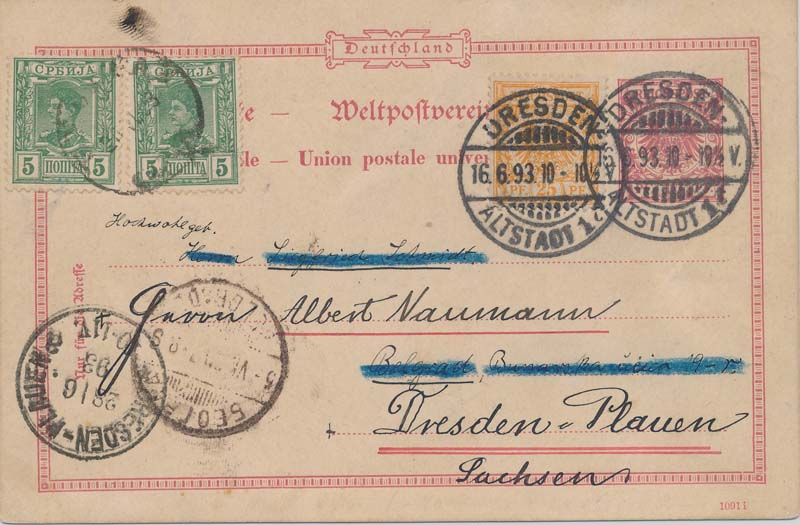 Deutschland
СРБИЈА СРБИЈА
5 ПОШТА 5 5 ПОШТА 5
Weltpostverein
Union postale univer
DRESDEN-
16.6.93.10-10½V.
ALTSTADT 1.c
25 PF
DRESDEN-
6.93.10-10½V.
ALTSTADT 1.c
Hochwohlgeb.
Herrn Siegfried Schmidt
Nur für die Adresse
Herrn Albert Naumann
Belgrad
Dresden-Plauen
Sachsen
DRESDEN-PLAUEN
28/6
93
10911